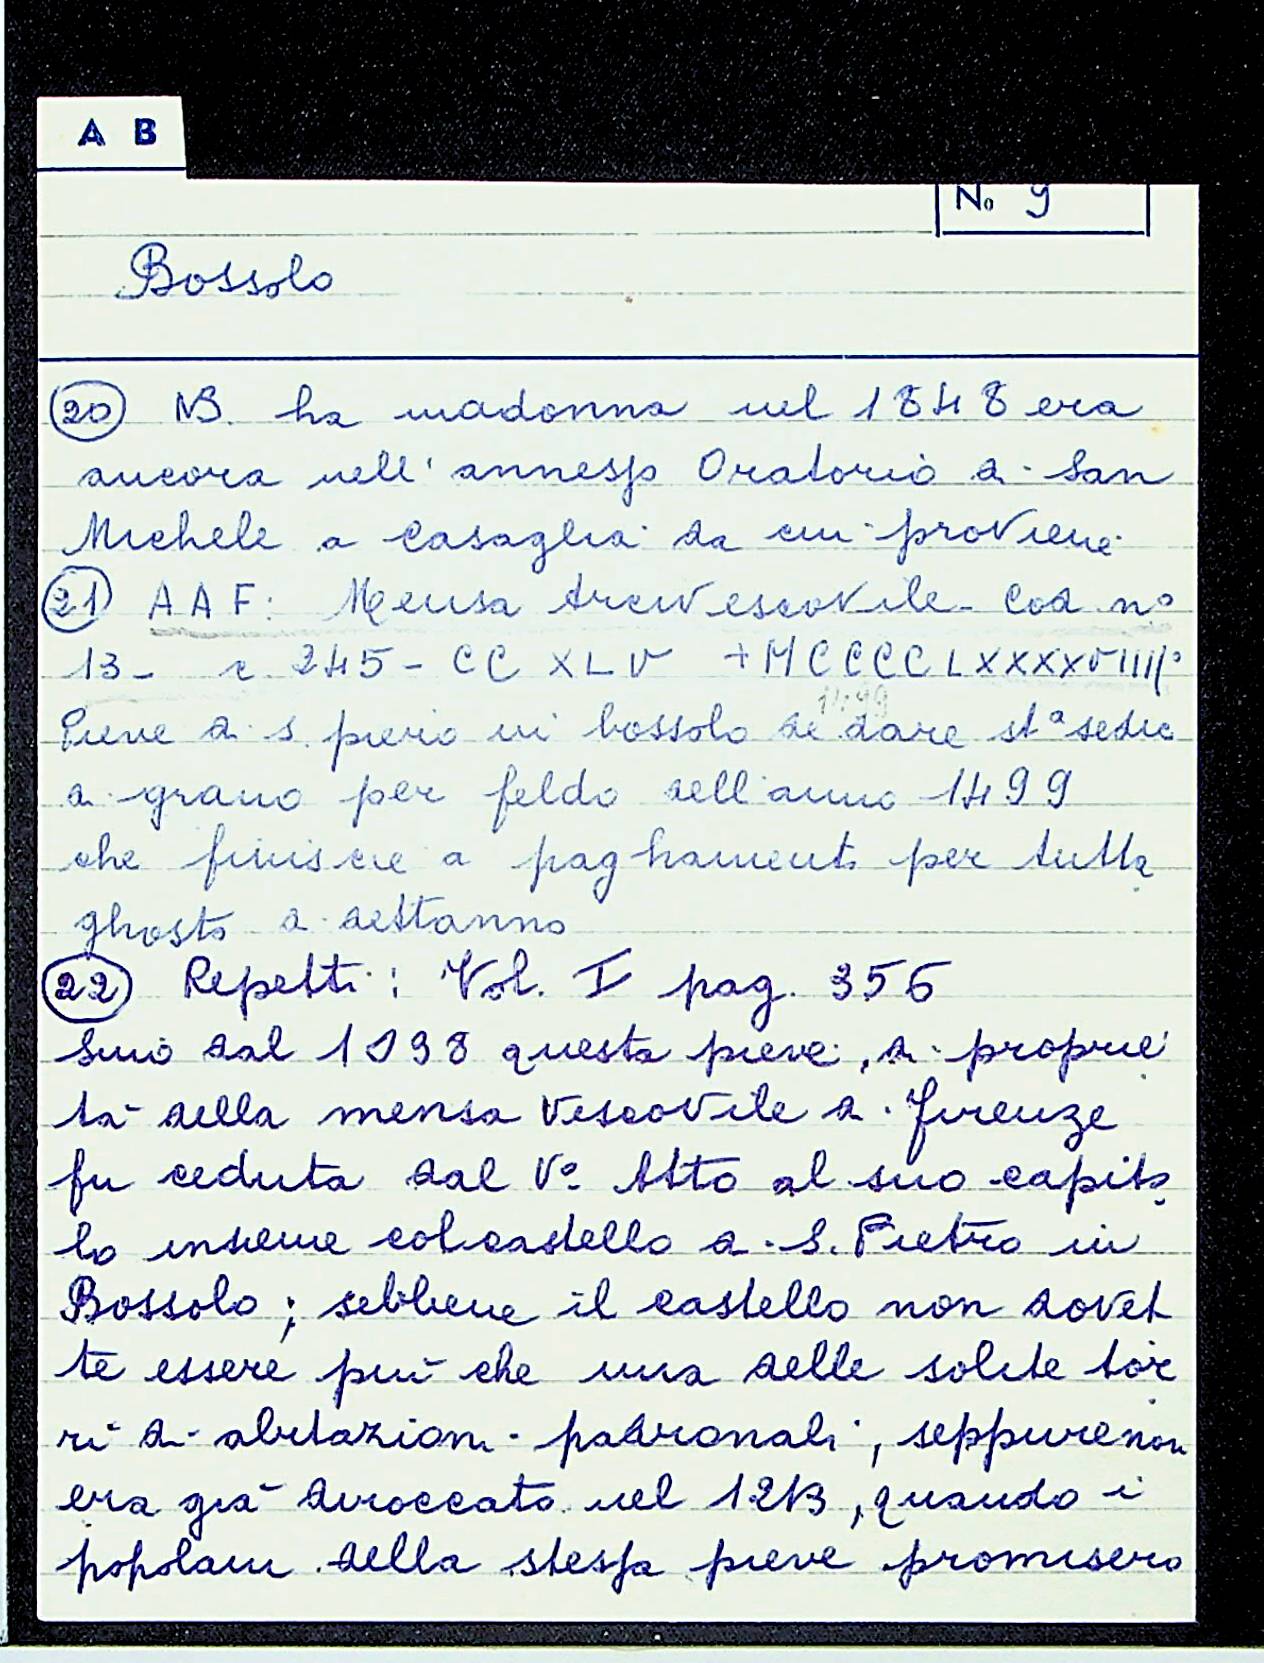 A B
No 9
Bossolo
20 NB. La madonna nel 1848 era
ancora nell'annesso Oratorio di San
Michele a Casaglia da cui proviene
21 AAF: Mensa Arcivescovile - Cod n°
13 - c 245 - CC XLV + MCCCCLXXXXVIIII°
1499
Pieve di s. piero in bossolo de dare st.a sedic
di grano per feldo dell'anno 1499
che finisce a paghamento per tutto
ghosto di dettanno
22 Repetti: Vol. I pag. 356
Sino dal 1038 questa pieve, di proprie
tà della mensa Vescovile di Firenze
fu ceduta dal V° Atto al suo capito
lo insieme col castello di S. Pietro in
Bossolo; sebbene il castello non dovet
te essere più che una delle solite tor
ri di abitazioni padronali, seppure non
era già diroccato nel 1213, quando i
popolani della stessa pieve promisero